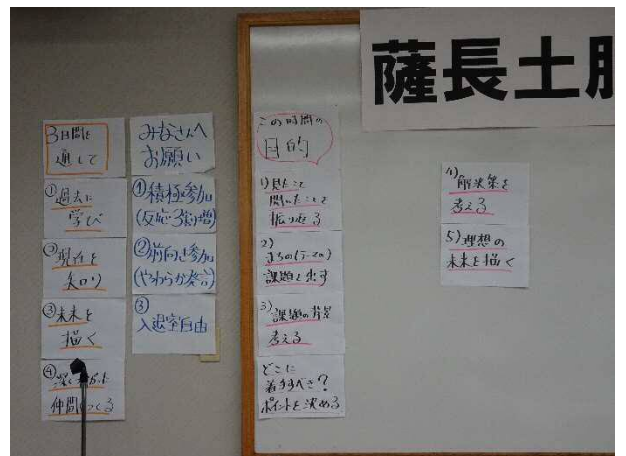 薩長土肥
3日間を
通して
①過去に
学び
②現在を
知り
③未来を
描く
④
仲間つくる
みなさんへ
お願い
①積極参加
(反応3割増)
②前向き参加
(やわらか発言)
③
入退室自由
この時間の
目的
1)見たこと
聞いたことを
振り返る
2)
まちの(テーマの)
課題を出す
3)課題の背景
考える
どこに
着目すべき?
ポイントを決める
4)解決策を
考える
5)理想の
未来を描く